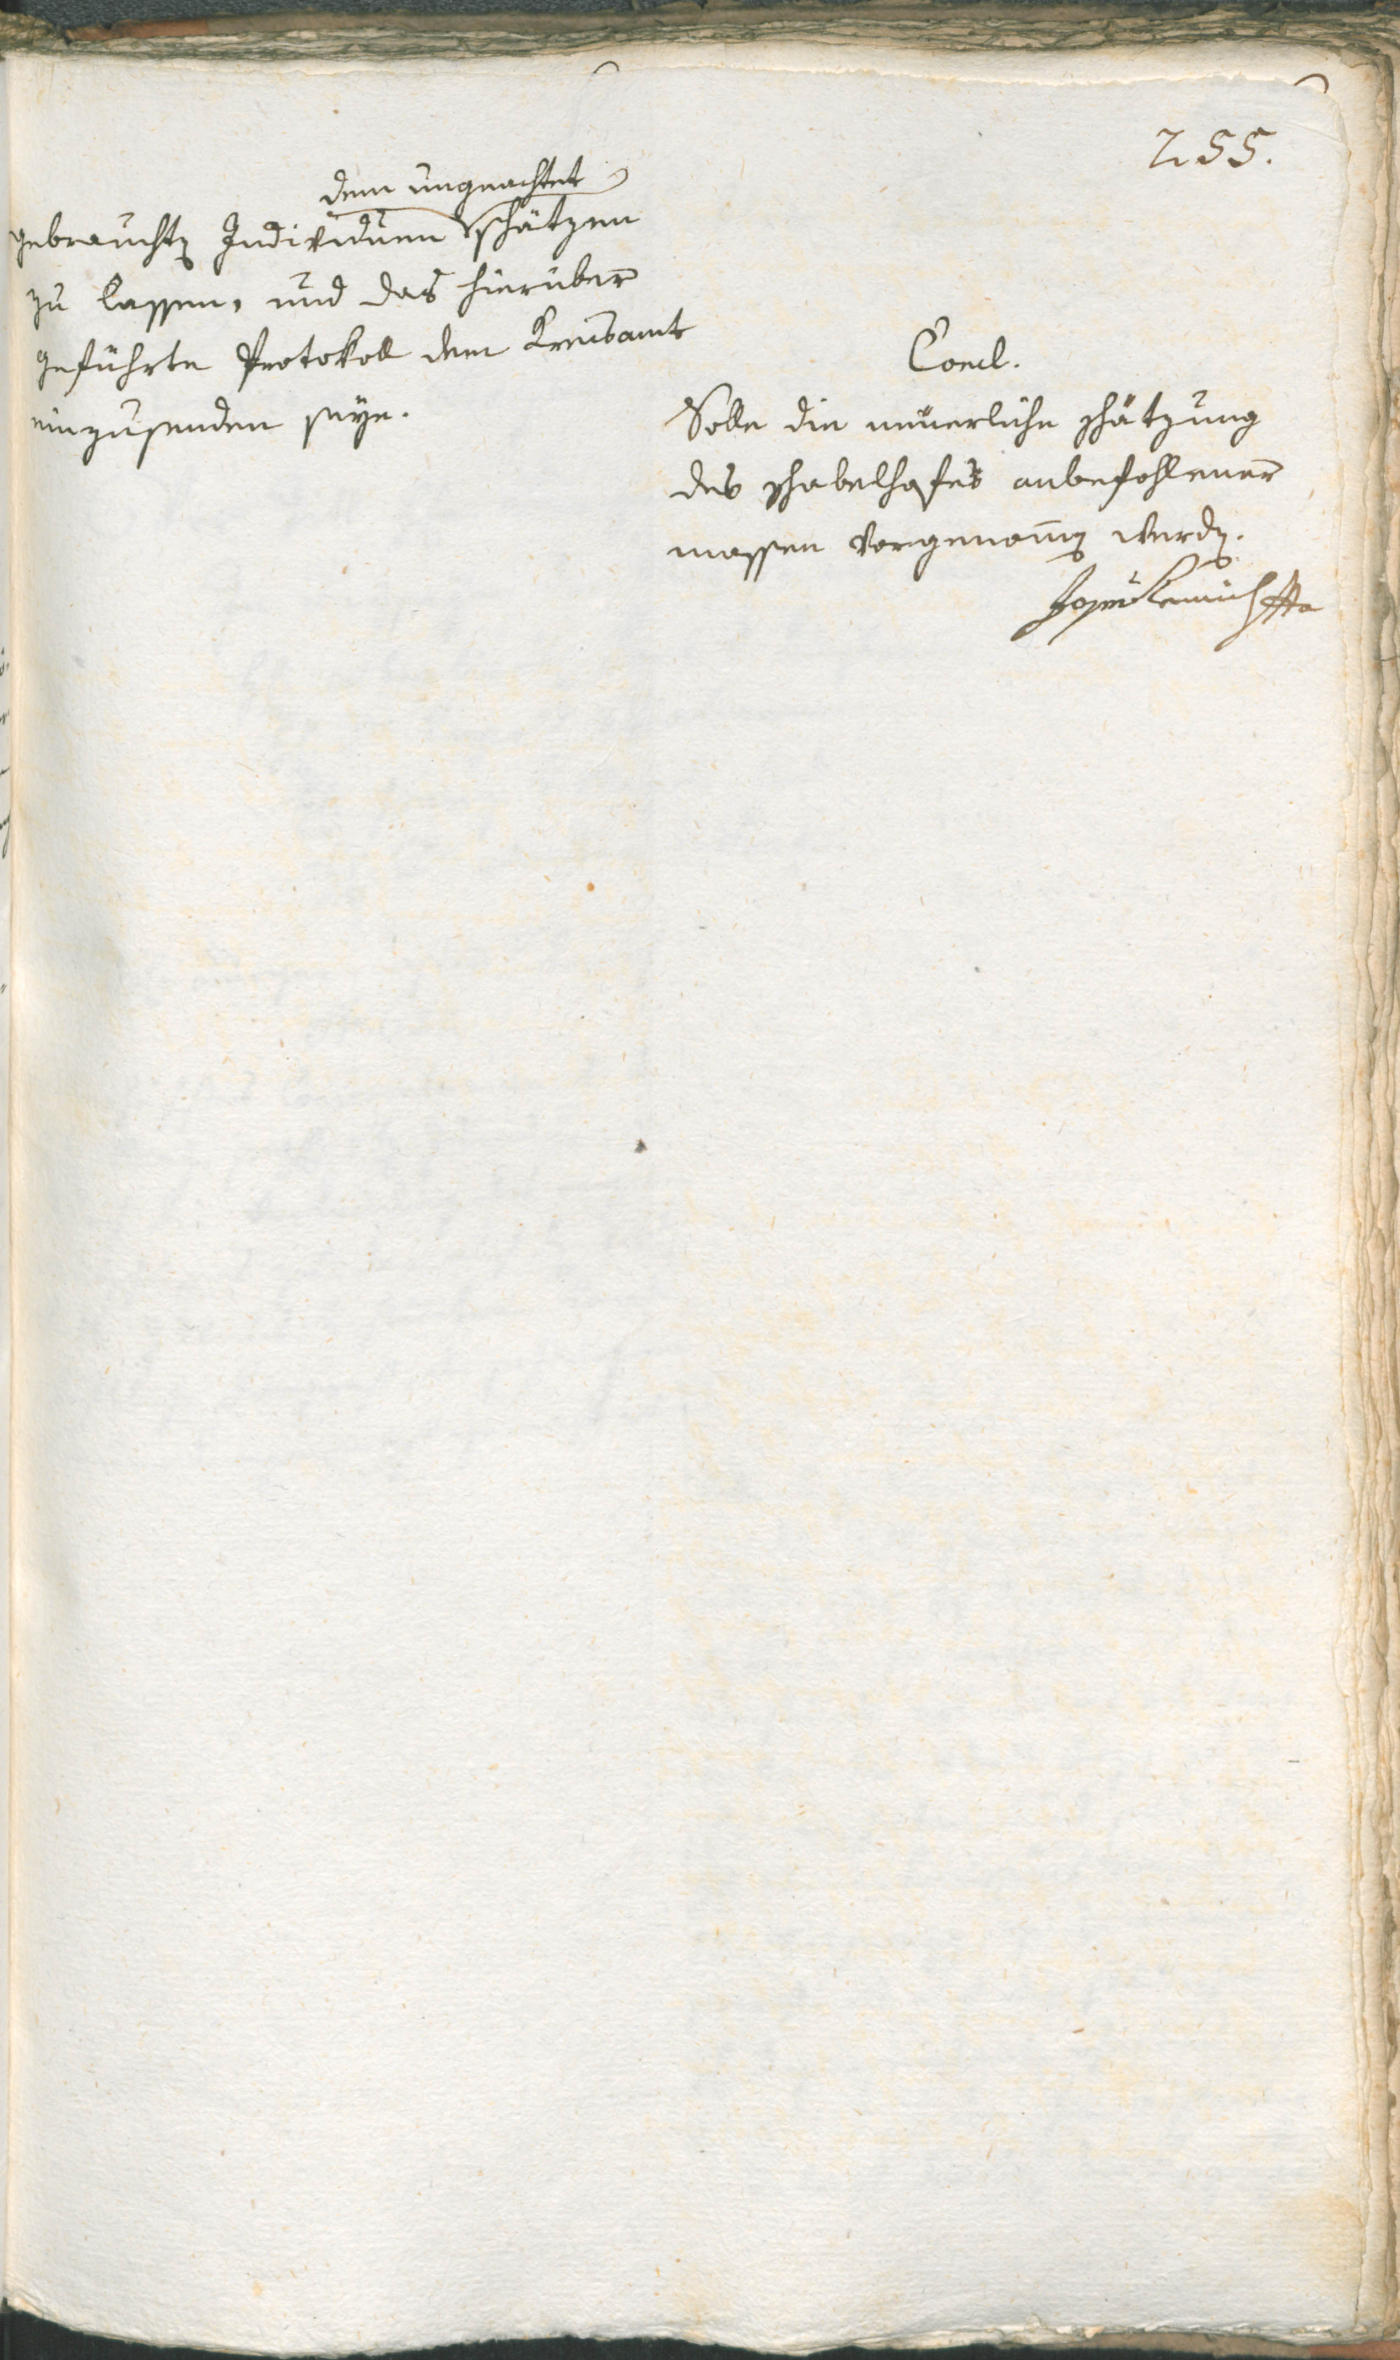 255.
dem ungeachtet
gebraucht Individuen schätzen
zu lassen, und das hierüber
geführte Protokoll dem Kreisamt
einzusenden seÿe.
Concl.
Solle die neuerliche schätzung
des schabelhofes anbefohlener
massen vorgenom̄en werden.